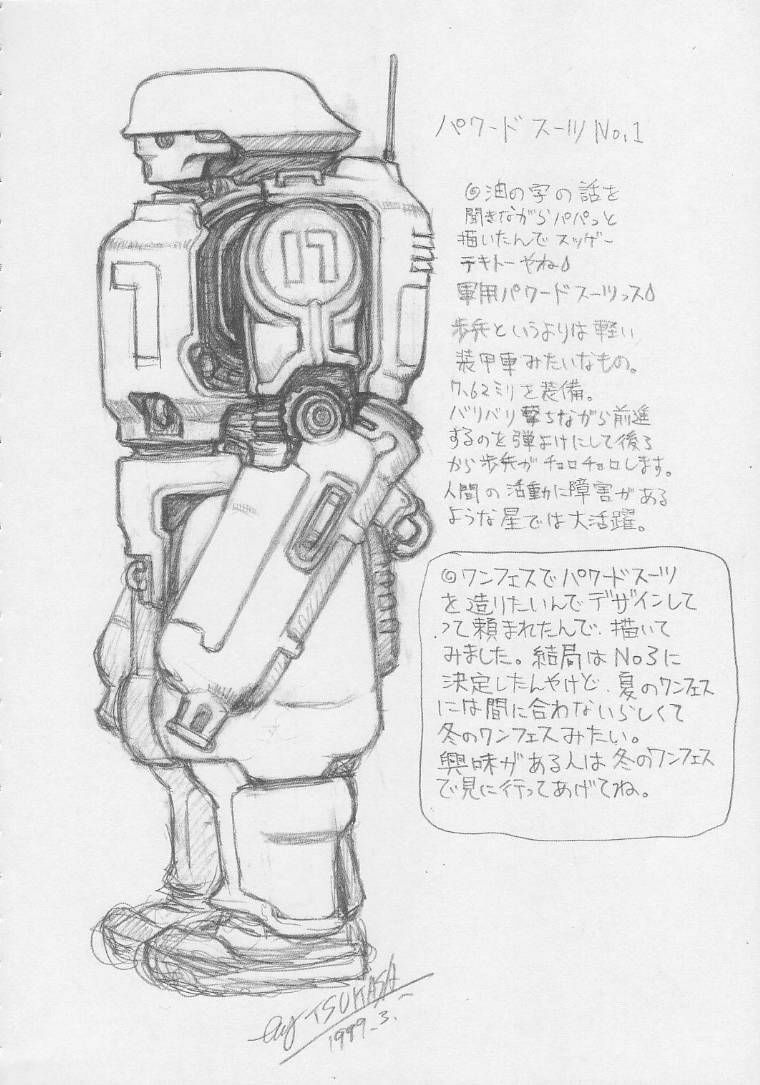 パワード スーツ No,1
◎油の字の話を
聞きながらパパっと
描いたんでスッゲー
テキトーやね♪
軍用パワードスーツっス♪
歩兵というよりは軽い
装甲車みたいなもの。
7.62ミリを装備。
バリバリ撃ちながら前進
するのを弾よけにして後ろ
から歩兵がチョロチョロします。
人間の活動に障害がある
ような星では大活躍。
◎ワンフェスでパワードスーツ
を造りたいんでデザインして
って頼まれたんで、描いて
みました。結局はNo3に
決定したんやけど、夏のワンフェス
には間に合わないらしくて
冬のワンフェスみたい。
興味がある人は冬のワンフェス
で見に行ってあげてね。
17
7
by TSUKASA
1999.3.